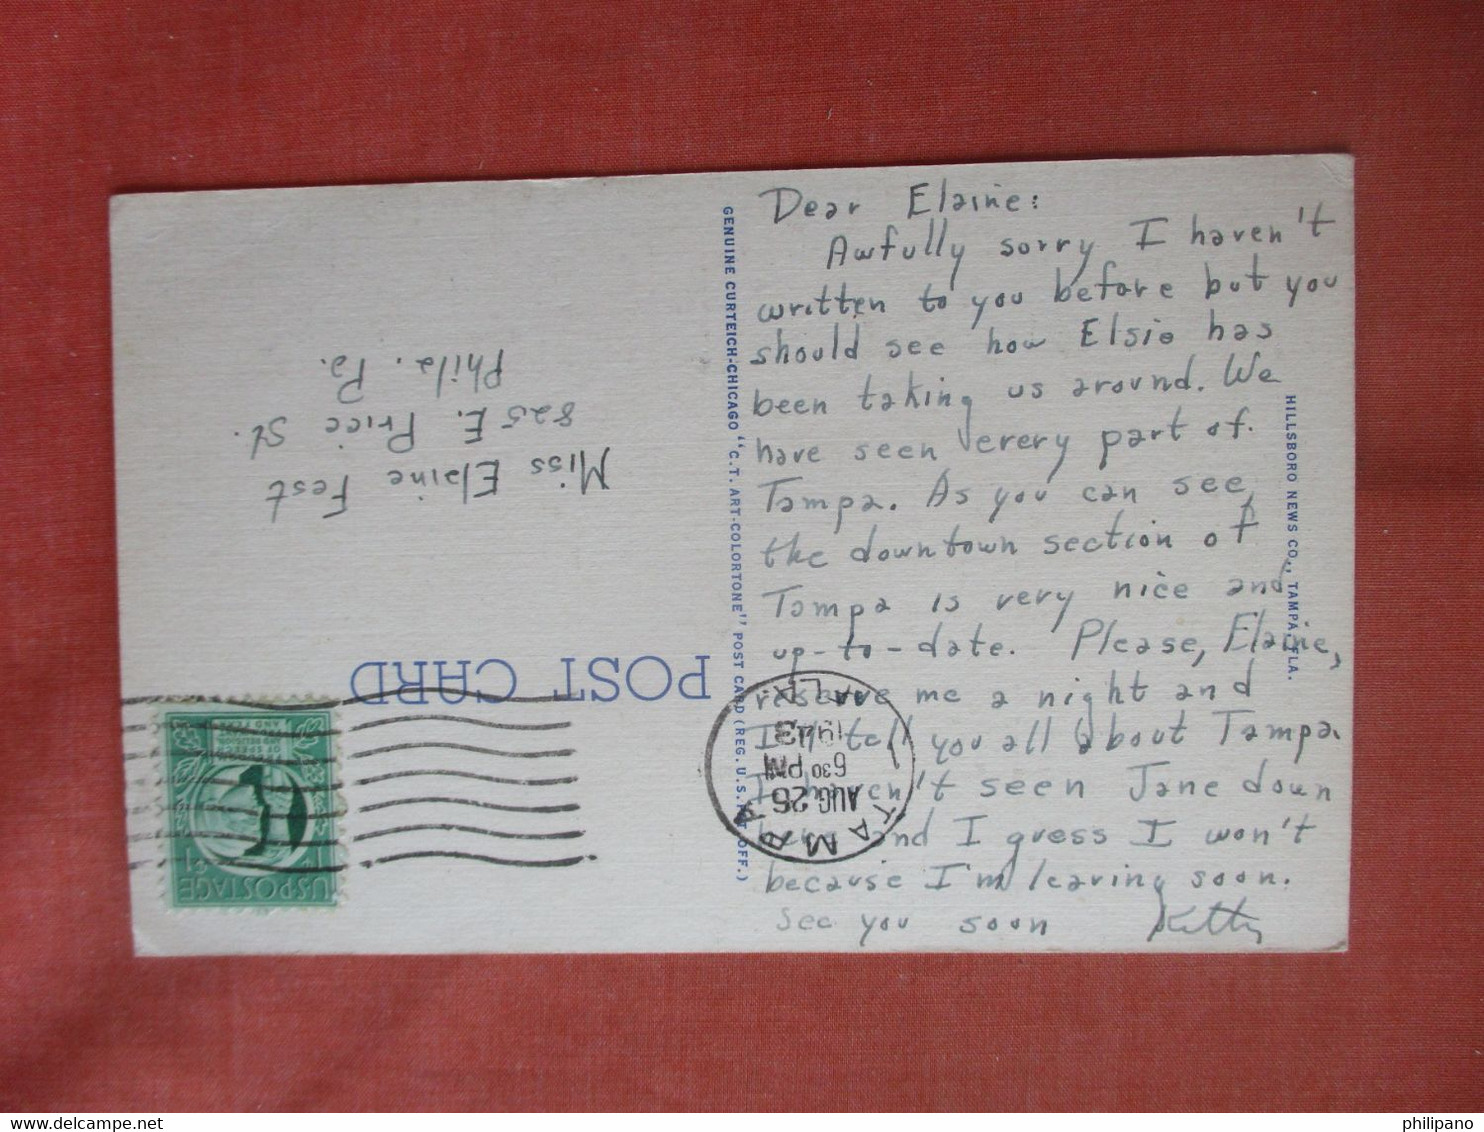 Dear Elaine:
Awfully sorry I haven't
written to you before but you
should see how Elsie has
been taking us around. We
have seen every part of
Tampa. As you can see,
the downtown section of
Tampa is very nice and
up-to-date. Please, Elaine,
reserve me a night and
I'll tell you all about Tampa.
I haven't seen Jane down
here and I guess I won't
because I'm leaving soon.
See you soon Kitty
HILLSBORO NEWS CO., TAMPA, FLA.
GENUINE CURTEICH-CHICAGO "C.T. ART-COLORTONE" POST CARD (REG. U.S. PAT. OFF.)
POST CARD
TAMPA
AUG 26
6 30 PM
1943
FLA.
U.S. POSTAGE
1¢
Miss Elaine Fest
825 E. Price St.
Phila. Pa.
philipano